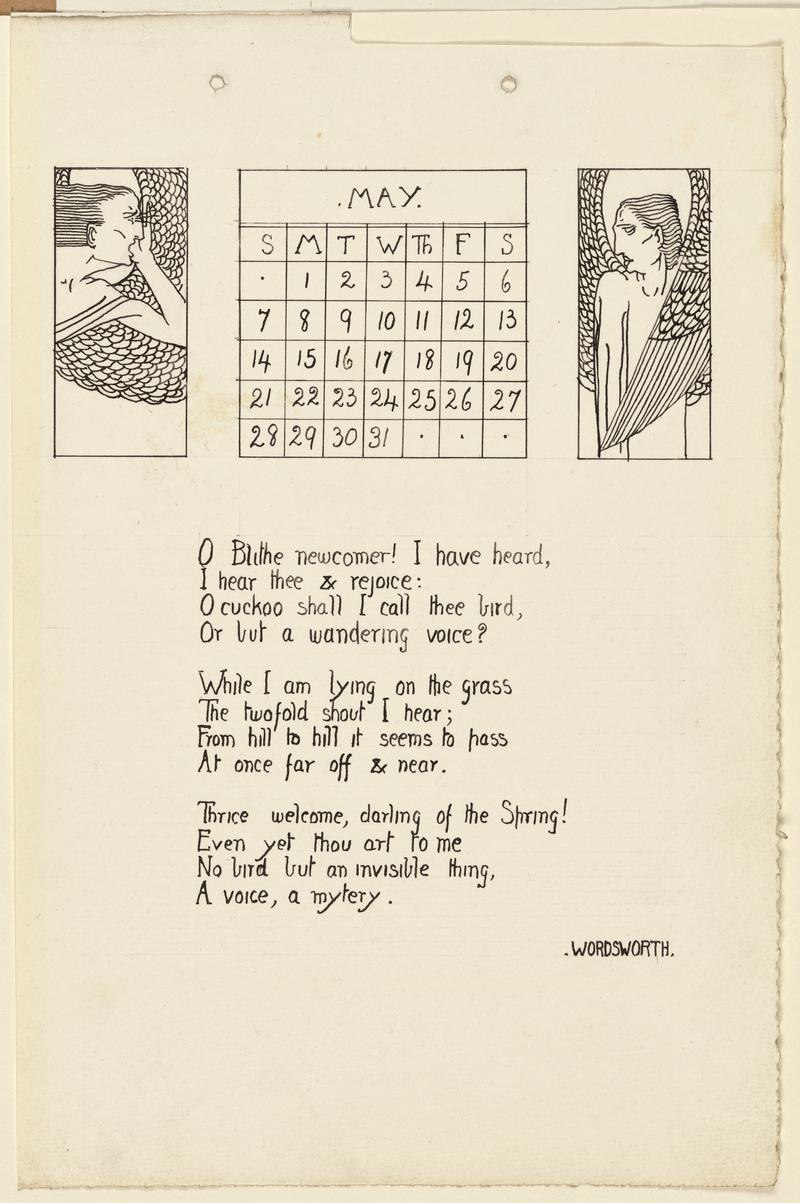 .MAY.
S M T W Th F S
. 1 2 3 4 5 6
7 8 9 10 11 12 13
14 15 16 17 18 19 20
21 22 23 24 25 26 27
28 29 30 31 . . .
O Blithe newcomer! I have heard,
I hear thee & rejoice:
O cuckoo shall I call thee bird,
Or but a wandering voice?
While I am lying on the grass
The twofold shout I hear;
From hill to hill it seems to pass
At once far off & near.
Thrice welcome, darling of the Spring!
Even yet thou art to me
No bird but an invisible thing,
A voice, a mytery.
.WORDSWORTH.